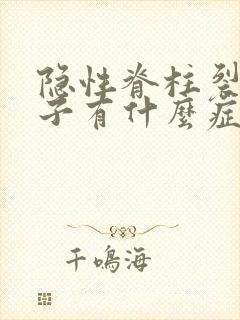 隐性脊柱裂
子有什麼症
千鳴海